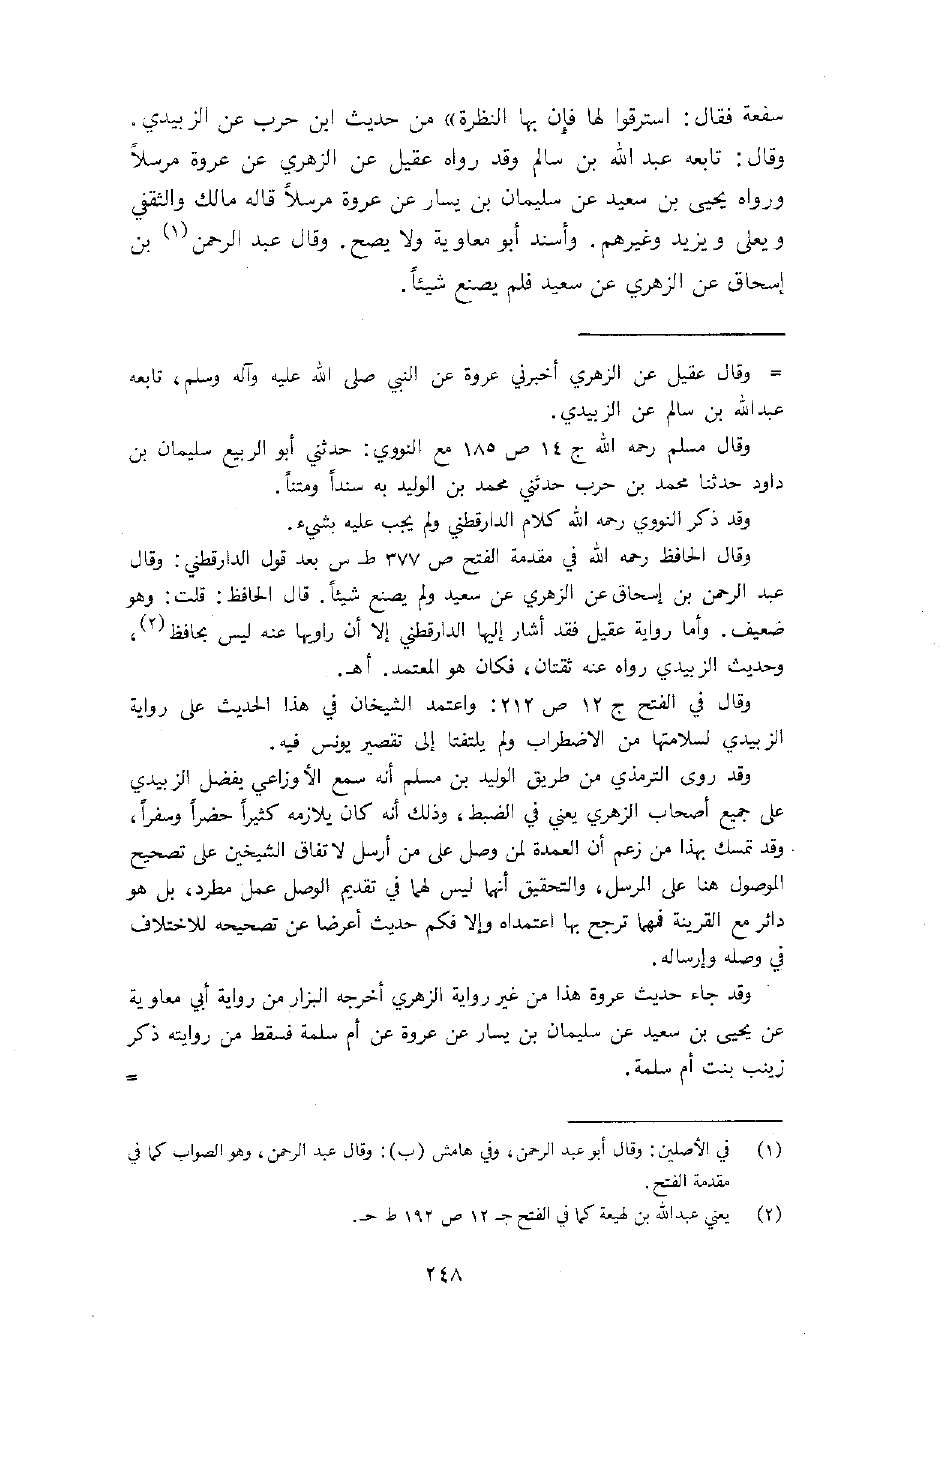 سفعة فقال: استرقوا لها فإن بها النظرة» من حديث ابن حرب عن الزبيدي.
وقال: تابعه عبد الله بن سالم وقد رواه عقيل عن الزهري عن عروة مرسلاً
ورواه يحيى بن سعيد عن سليمان بن يسار عن عروة مرسلاً قاله مالك والثقفي
ويعلى ويزيد وغيرهم. وأسند أبو معاوية ولا يصح. وقال عبد الرحمن(١) بن
إسحاق عن الزهري عن سعيد فلم يصنع شيئاً.
= وقال عقيل عن الزهري أخبرني عروة عن النبي صلى الله عليه وآله وسلم، تابعه
عبدالله بن سالم عن الزبيدي.
وقال مسلم رحمه الله ج ١٤ ص ١٨٥ مع النووي: حدثني أبو الربيع سليمان بن
داود حدثنا محمد بن حرب حدثني محمد بن الوليد به سنداً ومتناً.
وقد ذكر النووي رحمه الله كلام الدارقطني ولم يجب عليه بشيء.
وقال الحافظ رحمه الله في مقدمة الفتح ص ٣٧٧ ط س بعد قول الدارقطني: وقال
عبد الرحمن بن إسحاق عن الزهري عن سعيد ولم يصنع شيئاً. قال الحافظ: قلت: وهو
ضعيف. وأما رواية عقيل فقد أشار إليها الدارقطني إلا أن راويها عنه ليس بحافظ(٢)،
وحديث الزبيدي رواه عنه ثقتان، فكان هو المعتمد. أهـ.
وقال في الفتح ج ١٢ ص ٢١٢: واعتمد الشيخان في هذا الحديث على رواية
الزبيدي لسلامتها من الاضطراب ولم يلتفتا إلى تقصير يونس فيه.
وقد روى الترمذي من طريق الوليد بن مسلم أنه سمع الأوزاعي يفضل الزبيدي
على جميع أصحاب الزهري يعني في الضبط، وذلك أنه كان يلازمه كثيراً حضراً وسفراً،
وقد تمسك بهذا من زعم أن العمدة لمن وصل على من أرسل لاتفاق الشيخين على تصحيح
الموصول هنا على المرسل، والتحقيق أنها ليس لهما في تقديم الوصل عمل مطرد، بل هو
دائر مع القرينة فمهما ترجح بها اعتمداه وإلا فكم حديث أعرضا عن تصحيحه للاختلاف
في وصله وإرساله.
وقد جاء حديث عروة هذا من غير رواية الزهري أخرجه البزار من رواية أبي معاوية
عن يحيى بن سعيد عن سليمان بن يسار عن عروة عن أم سلمة فسقط من روايته ذكر
زينب بنت أم سلمة. =
(١) في الأصلين: وقال أبو عبد الرحمن، وفي هامش (ب): وقال عبد الرحمن، وهو الصواب كما في
مقدمة الفتح.
(٢) يعني عبدالله بن لهيعة كما في الفتح جـ ١٢ ص ١٩٢ ط حـ.
٢٤٨